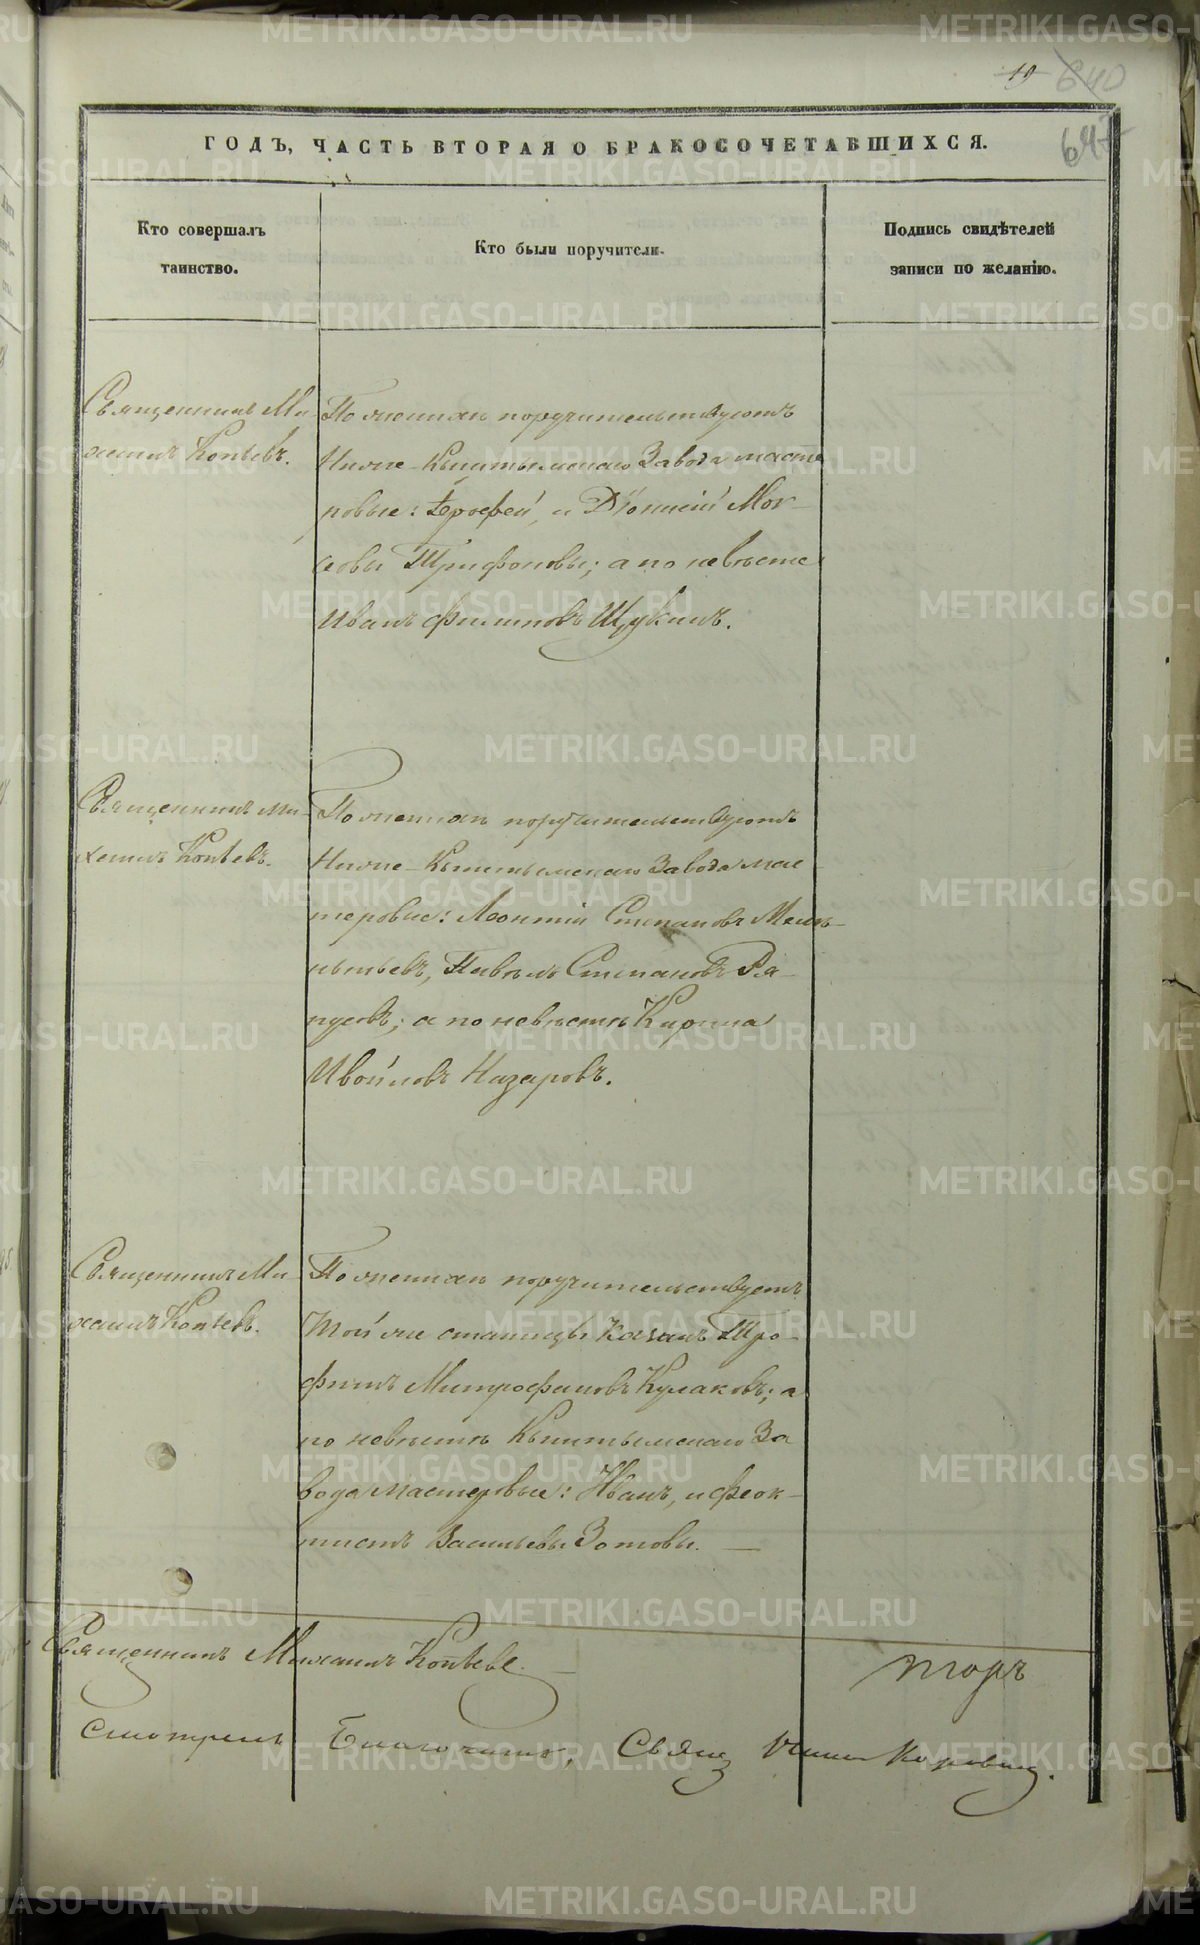 19 640
647
ГОДЪ, ЧАСТЬ ВТОРАЯ О БРАКОСОЧЕТАВШИХСЯ.
Кто совершалъ
таинство.
Кто были поручители.
Подпись свидѣтелей
записи по желанію.
Священникъ Ми-
хаилъ Копѣевъ.
По женихѣ поручительствуютъ
Нижне-Кыштымскаго Завода масте
ровые: Ерофей, и Діонисій Мок
Трифоновы; а по невѣсте
Иванъ Филиповъ Щукинъ.
Священникъ Ми-
хаилъ Копѣевъ.
По женихѣ поручительствуютъ
Нижне-Кыштымскаго Завода мас
теровые: Леонтій Степановъ Мелен-
тьевъ, Павелъ Степановъ
а по невѣстѣ Кирила
Ивойловъ Назаровъ.
Священникъ Ми-
хаилъ Копѣевъ.
По женихѣ поручительствуетъ
Той же станицы Казакъ Тро-
фимъ Митрофановъ Кулаковъ; а
по невѣстѣ Кыштымскаго За
вода мастеровые: Иванъ, и Феок-
тистъ Васильевы Зотовы. —
Священникъ Михаилъ Копѣевъ.
Смотрелъ Благочинный, Свящ
METRIKI.GASO-URAL.RU